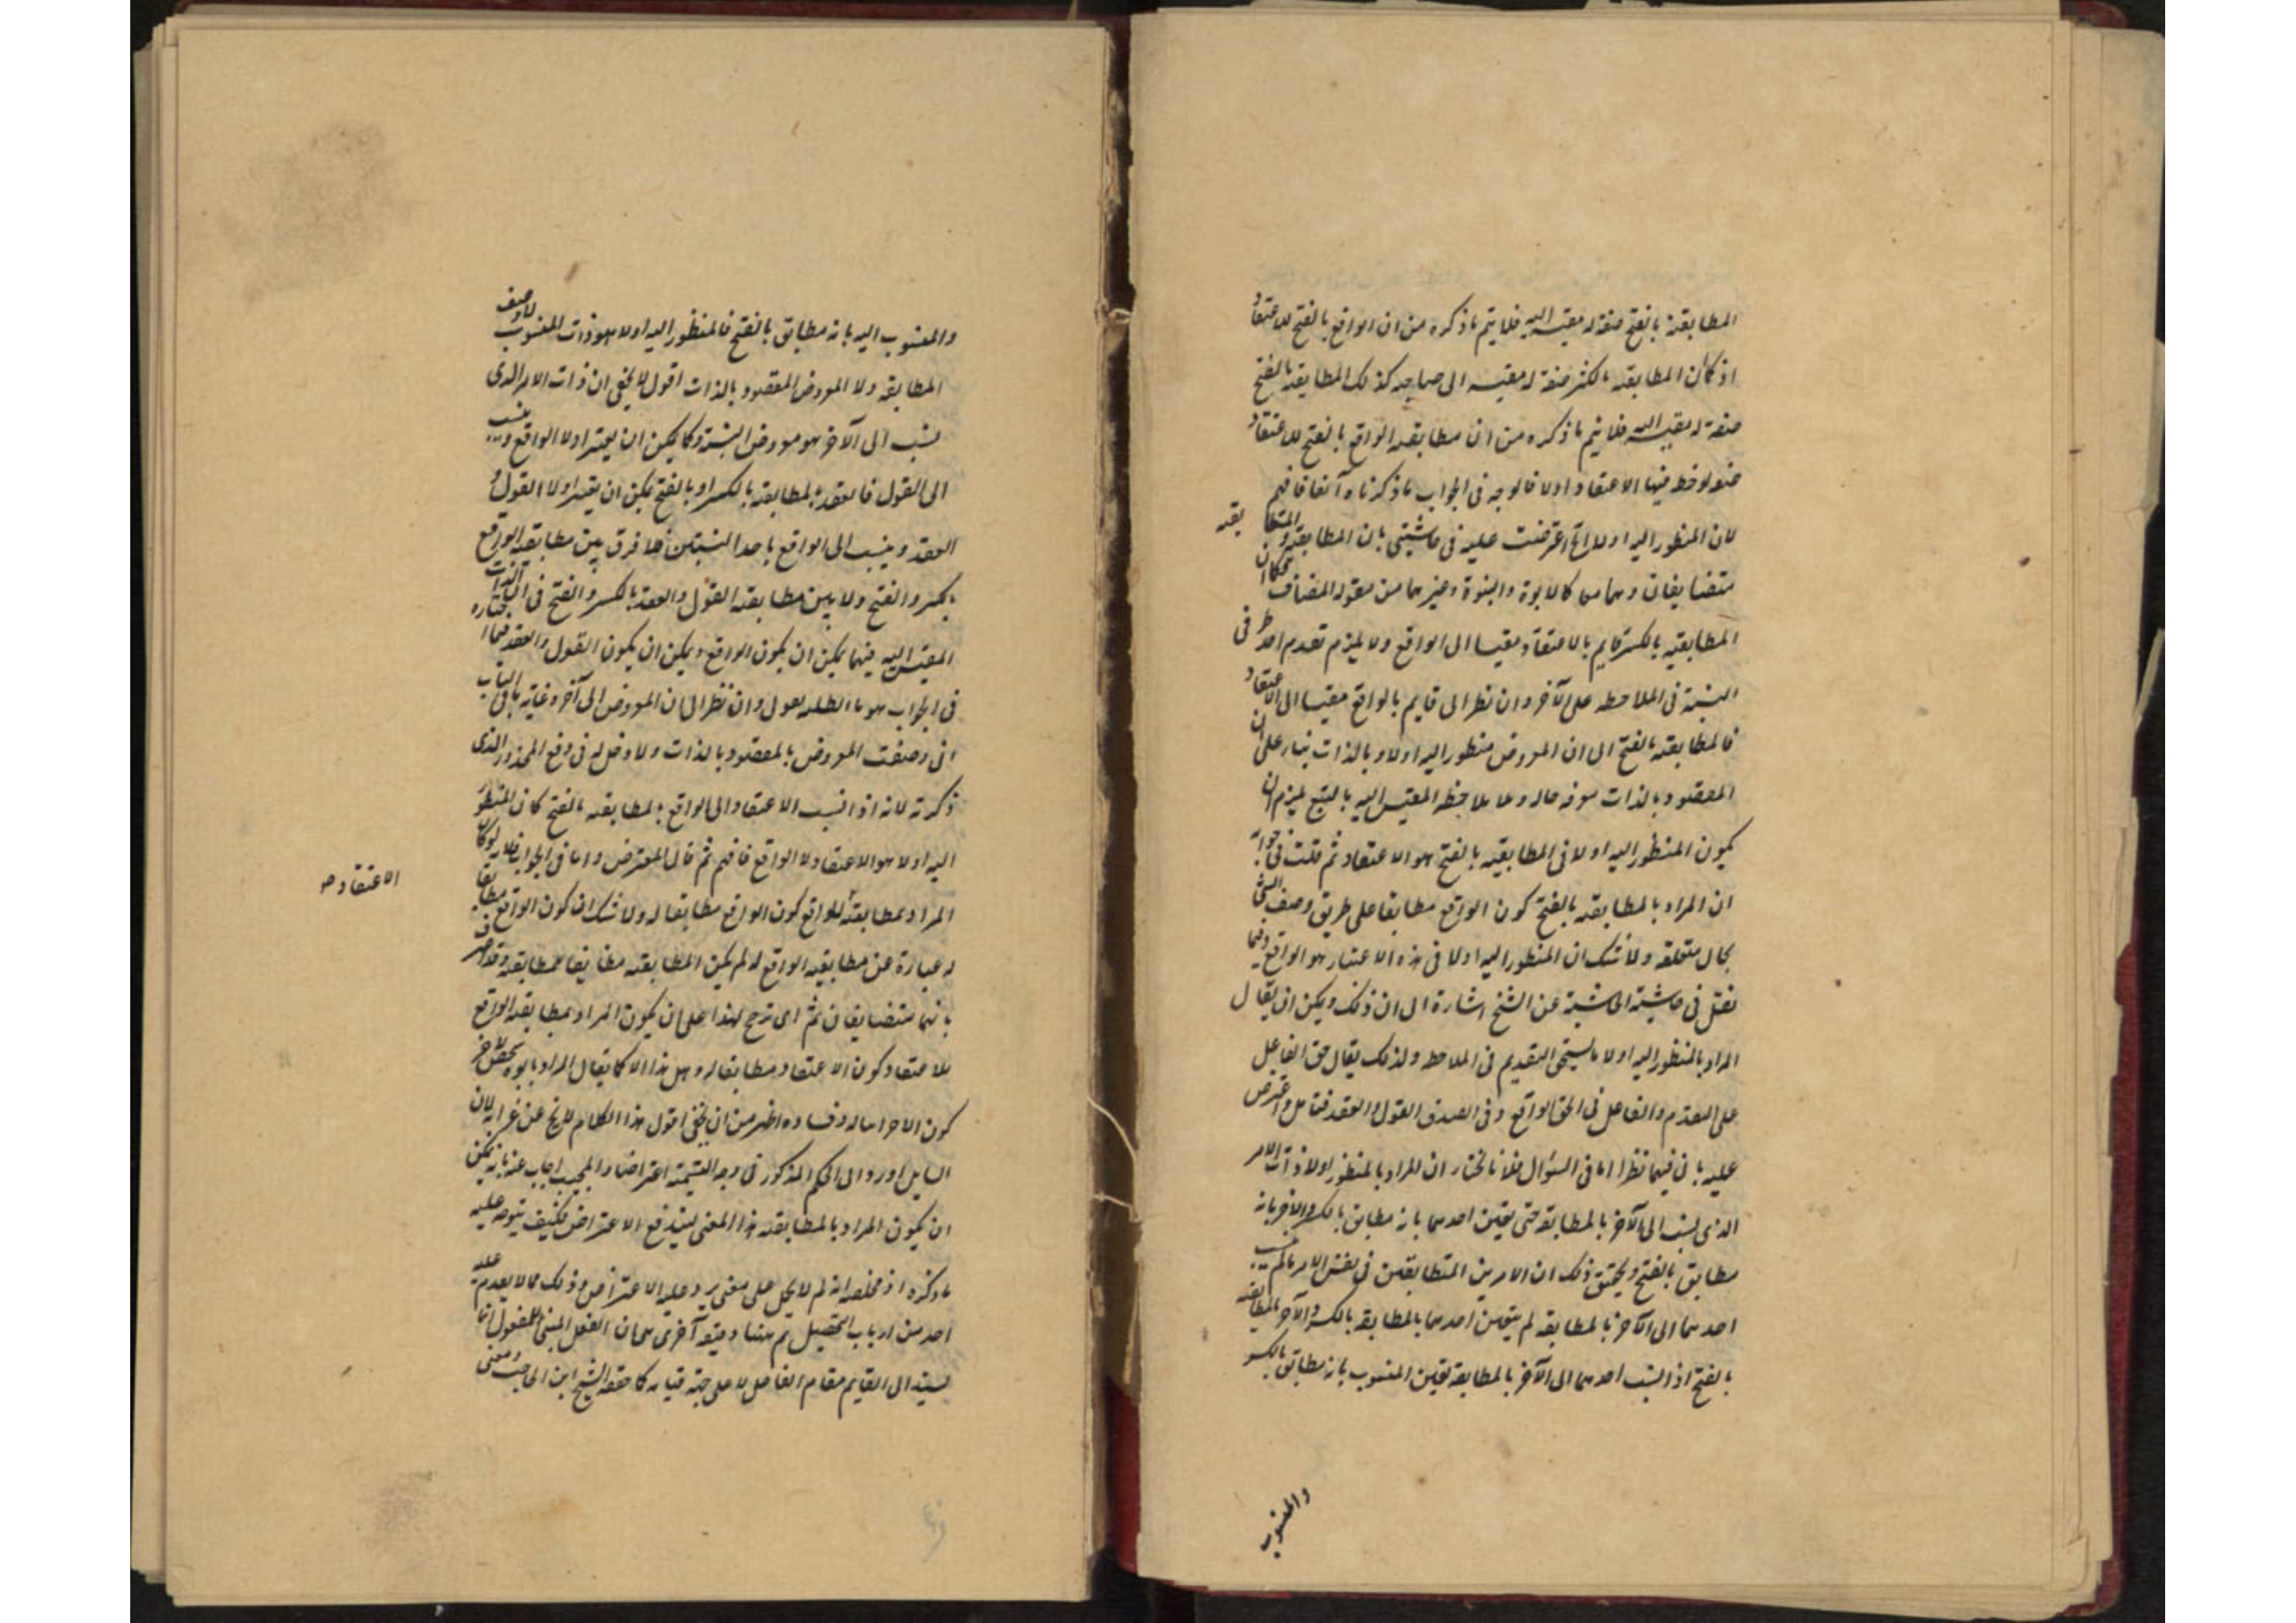 المطابقة بالفتح صفة له مقيسة اليه فلا يتم ما ذكره من ان الواقع بالفتح للاعتقاد
اذ كما ان المطابقة بالكسر صفة له مقيسه الى صاحبه كذلك المطابقة بالفتح
صفة له مقيسة اليه فلا يتم ما ذكره من ان مطابقة الواقع بالفتح للاعتقاد
ملحوظ فيها الاعتقاد اولا فالوجه فى الجواب ما ذكرناه آنفا فافهم
لان المنظور اليه اولا الخ اعترضت عليه فى حاشيتى بان المطابقة والمطابقة
متضايفان وهما معا كالابوة والبنوة وغيرهما من مقولة المضاف فكما ان
المطابقية بالكسر قايم بالاعتقاد مقيسا الى الواقع ولا يلزم تقدم احد طرفى
النسبة فى الملاحظه على الآخر وان نظر الى قايم بالواقع مقيسا الى الاعتقاد
فالمطابقة بالفتح الى ان المعروض منظور اليه اولا وبالذات بناء على ان
المقصود بالذات معرفه حاله وملاحظه المقيس اليه بالتبع يلزم ان
يكون المنظور اليه اولا فى المطابقيه بالفتح هو الاعتقاد ثم قلت فى جوابه
ان المراد بالمطابقه بالفتح كون الواقع مطابقا على طريق وصف الشئ
بحال متعلقه ولا شك ان المنظور اليه اولا فى هذه الاعتبار هو الواقع وفيما
نقل فى حاشية الحاشية عن الشيخ اشارة الى ان ذلك ويمكن ان يقال
المراد بالمنظور اليه اولا ما يستحق التقديم فى الملاحظه ولذلك يقال حق الفاعل
على التقدم والفاعل فى الحق الواقع وفى الصدق القول والعقد فتامل واعترض
عليه بان فيهما نظرا اما فى السؤال فلانا نختار ان المراد بالمنظور اولا ذات الامر
الذى نسب الى الآخر بالمطابقة حتى يتعين احدهما بانه مطابق بالكسر والآخر بانه
مطابق بالفتح وتحقيق ذلك ان الامرين المتطابقين فى نفس الامر ما لم ينسب
احدهما الى الآخر بالمطابقه لم يتعين احدهما بالمطابقة بالكسر والآخر بالمطابقه
بالفتح اذ انسب احدهما الى الآخر بالمطابقة تعين المنسوب بانه مطابق بالكسر
والمنسوب
والمنسوب اليه بانه مطابق بالفتح فالمنظور اليه اولا هو ذات المنسوب لا وصف
المطابقه ولا المعروض المقصود بالذات اقول لا يخفى ان ذات الامر الذى
نسب الى الآخر هو معروض النسبة وكما يمكن ان يعتبر اولا الواقع وينسب
الى القول فالعقد بالمطابقه بالكسر او بالفتح يمكن ان يعتبر اولا القول و
العقد وينسب الى الواقع باحد النسبتين فلا فرق بين مطابقة الواقع
بالكسر والفتح ولا بين مطابقة القول والعقد بالكسر والفتح فى ان الذات
المقيس اليه فيهما يمكن ان يكون الواقع ويمكن ان يكون القول والعقد فما اختاره
فى الجواب هو ما ابطله بقوله وان نظر الى ان المعروض الى آخره وغاية ما فى الباب
انى وصفت المعروض بالمقصود بالذات ولا دخل له فى دفع المحذور الذى
ذكرته لانه اذا نسب الاعتقاد الى الواقع بالمطابقه بالفتح كان المنظور
اليه اولا هو الاعتقاد ولا الواقع فافهم ثم قال المعترض واما فى الجواب فلانه لو كان
المراد بمطابقة الواقع كون الواقع مطابقا له ولا شك ان كون الواقع مطابقا
الاعتقاد صح
له عبارة عن مطابقيه الواقع له لم يكن المطابقه مضايفا للمطابقه وقد صرف
بانهما متضايفان ثم اى ترجح لهذا على ان يكون المراد بمطابقه الواقع
للاعتقاد كون الاعتقاد مطابقا له وهل هذا الا كما يقال المراد بابوة شخص لآخر
كون الآخر ابنا له وفساده اظهر من ان يخفى اقول هذا الكلام لا يخ عن غرابة لان
السايل اورد الى الحكم المذكور فى وجه التسمية اعتراضا والمجيب اجاب عنه بانه يمكن
ان يكون المراد بالمطابقه هذا المعنى ليندفع الاعتراض فكيف يتوجه عليه
ما ذكره اذ ملخصه انه لم لا يحمل على معنى يرد عليه الاعتراض وذلك مما لا يقدم عليه
احد من ارباب التحصيل ثم ههنا دقيقه آخرى هى ان الفعل المبنى للمفعول انما
يسند الى القايم مقام الفاعل لا على جهة قيامه كما حققه الشيخ ابن الحاجب ومعنى